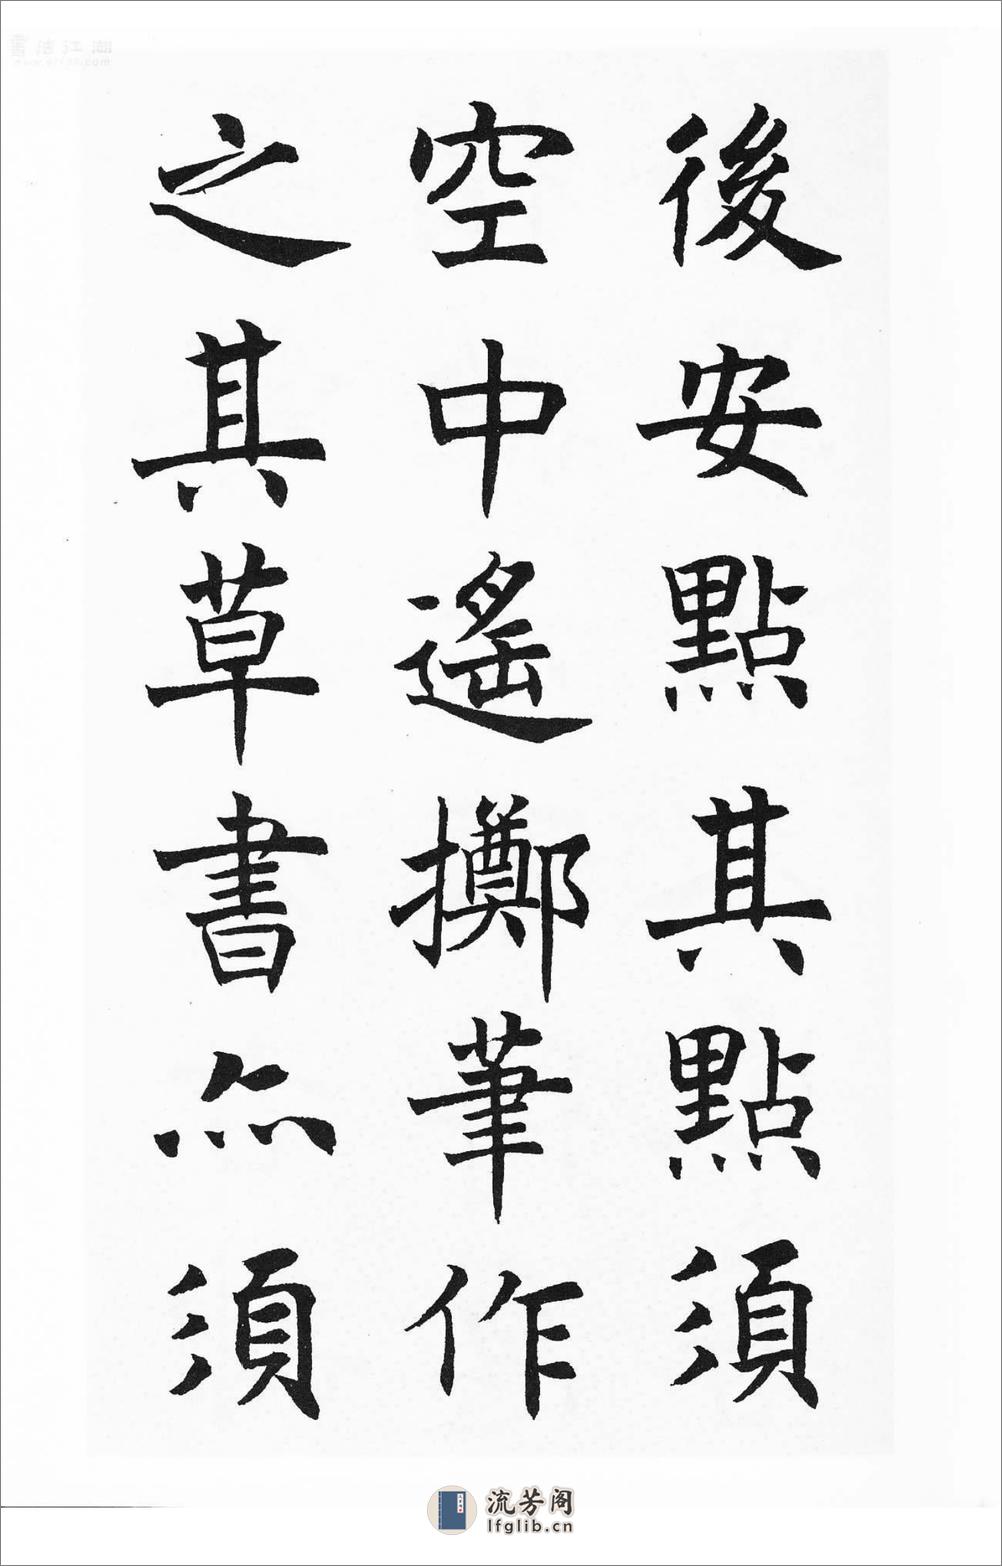 後安點其點須
空中遙擲筆作
之其草書亦須
流芳阁
lfglib.cn